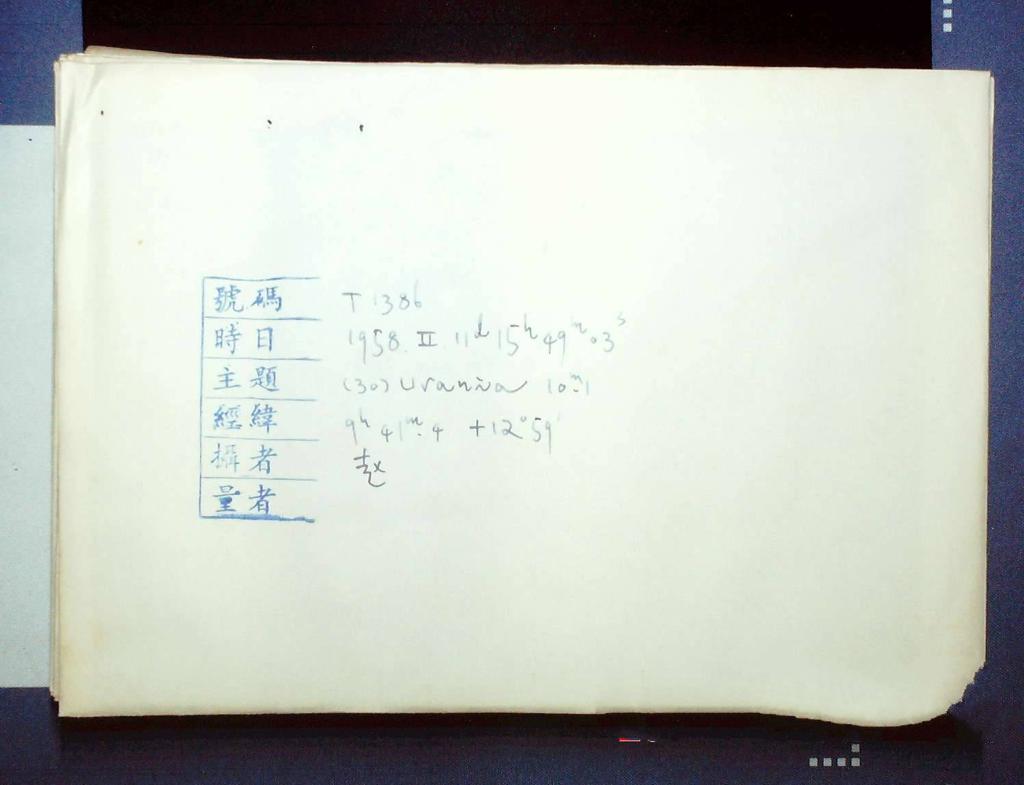 號碼 T 1386
時日 1958. II. 11ᵈ 15ʰ 49ᵐ 03ˢ
主題 (30) Urania 10ᵐ.1
經緯 9ʰ 41ᵐ.4 +12°59'
攝者 赵
量者